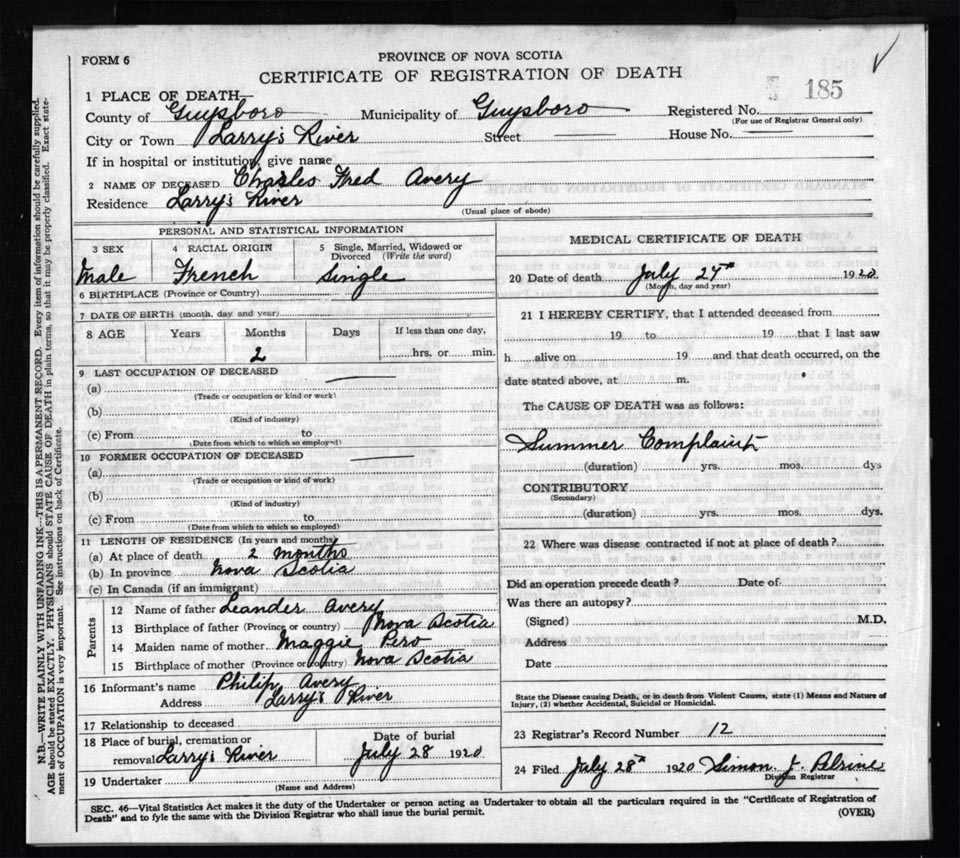 FORM 6
PROVINCE OF NOVA SCOTIA
CERTIFICATE OF REGISTRATION OF DEATH
185
1 PLACE OF DEATH—
County of Guysboro Municipality of Guysboro Registered No.
(For use of Registrar General only)
City or Town Larry's River Street House No.
If in hospital or institution, give name
2 NAME OF DECEASED Charles Fred Avery
Residence Larry's River
(Usual place of abode)
PERSONAL AND STATISTICAL INFORMATION
3 SEX 4 RACIAL ORIGIN 5 Single, Married, Widowed or Divorced (Write the word)
Male French Single
6 BIRTHPLACE (Province or Country)
7 DATE OF BIRTH (month, day and year)
8 AGE Years Months Days If less than one day,
2 hrs. or min.
9 LAST OCCUPATION OF DECEASED
(a)
(Trade or occupation or kind or work)
(b)
(Kind of industry)
(c) From to
(Date from which to which so employed)
10 FORMER OCCUPATION OF DECEASED
(a)
(Trade or occupation or kind of work)
(b)
(Kind of industry)
(c) From to
(Date from which to which so employed)
11 LENGTH OF RESIDENCE (In years and months)
(a) At place of death 2 months
(b) In province Nova Scotia
(c) In Canada (if an immigrant)
Parents
12 Name of father Leander Avery
13 Birthplace of father (Province or country) Nova Scotia
14 Maiden name of mother Maggie Pero
15 Birthplace of mother (Province or country) Nova Scotia
16 Informant's name Philip Avery
Address Larry's River
17 Relationship to deceased
18 Place of burial, cremation or removal Larry's River
Date of burial
July 28 1920
19 Undertaker
(Name and Address)
MEDICAL CERTIFICATE OF DEATH
20 Date of death July 27th 1920
(Month, day and year)
21 I HEREBY CERTIFY, that I attended deceased from
19 to 19 that I last saw
h alive on 19 and that death occurred, on the
date stated above, at m.
The CAUSE OF DEATH was as follows:
Summer Complaint
(duration) yrs. mos. dys
CONTRIBUTORY
(Secondary)
(duration) yrs. mos. dys.
22 Where was disease contracted if not at place of death?
Did an operation precede death? Date of
Was there an autopsy?
(Signed) M.D.
Address
Date
State the Disease causing Death, or in death from Violent Causes, state (1) Means and Nature of
Injury, (2) whether Accidental, Suicidal or Homicidal.
23 Registrar's Record Number 12
24 Filed July 28th 1920 Simon J. Pelrine
Division Registrar
SEC. 46—Vital Statistics Act makes it the duty of the Undertaker or person acting as Undertaker to obtain all the particulars required in the "Certificate of Registration of
Death" and to fyle the same with the Division Registrar who shall issue the burial permit.
(OVER)
N.B.—WRITE PLAINLY WITH UNFADING INK—THIS IS A PERMANENT RECORD. Every item of information should be carefully supplied.
AGE should be stated EXACTLY. PHYSICIANS should STATE CAUSE OF DEATH in plain terms, so that it may be properly classified. Exact state-
ment of OCCUPATION is very important. See instructions on back of Certificate.